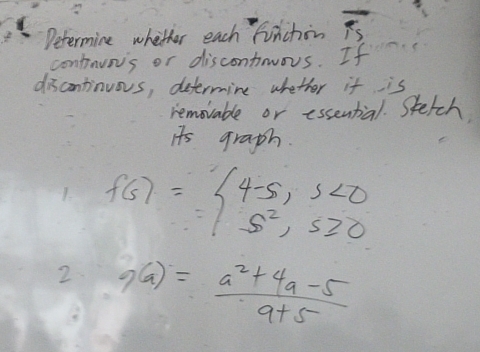 Determine whether each function is
continuous or discontinuous. If
discontinuous, determine whether it is
removable or essential. Sketch
its graph.
1. f(s) = { 4-s, s<0
s², s≥0
2. g(a) = a²+4a-5
a+5